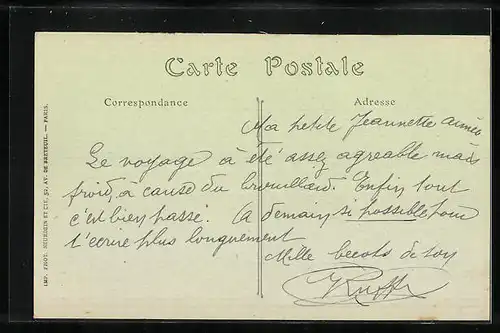 Carte Postale
Correspondance
Adresse
Ma petite Jeannette aimée
Le voyage a été assez agreable mais
froid, à cause du brouillard. Enfin tout
c'est bien passé. A demain si possible pour
t'ecrire plus longuement
Mille becots de ton
IMP. PHOT. NEURDEIN ET CIE, 52, AV. DE BRETEUIL. — PARIS.